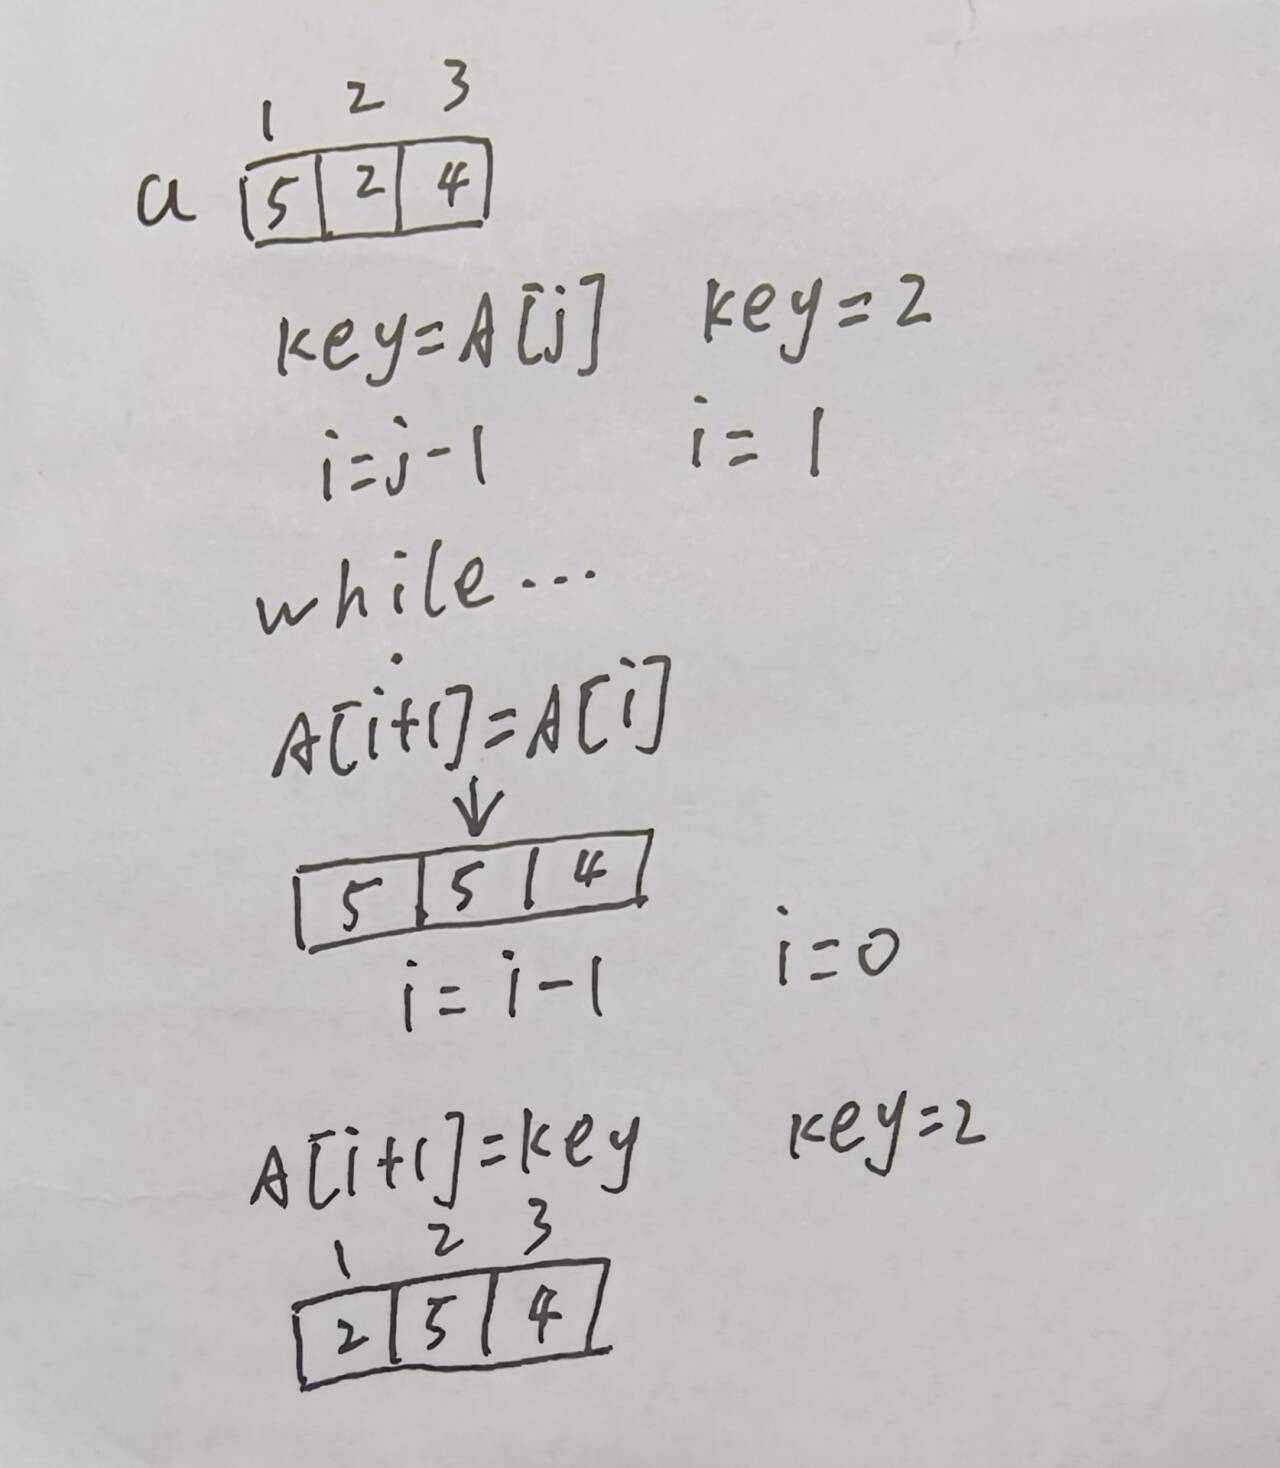 1 2 3
a 5 2 4
key=A[j] key=2
i=j-1 i=1
while...
A[i+1]=A[i]
↓
5 5 4
i=i-1 i=0
A[i+1]=key key=2
1 2 3
2 5 4